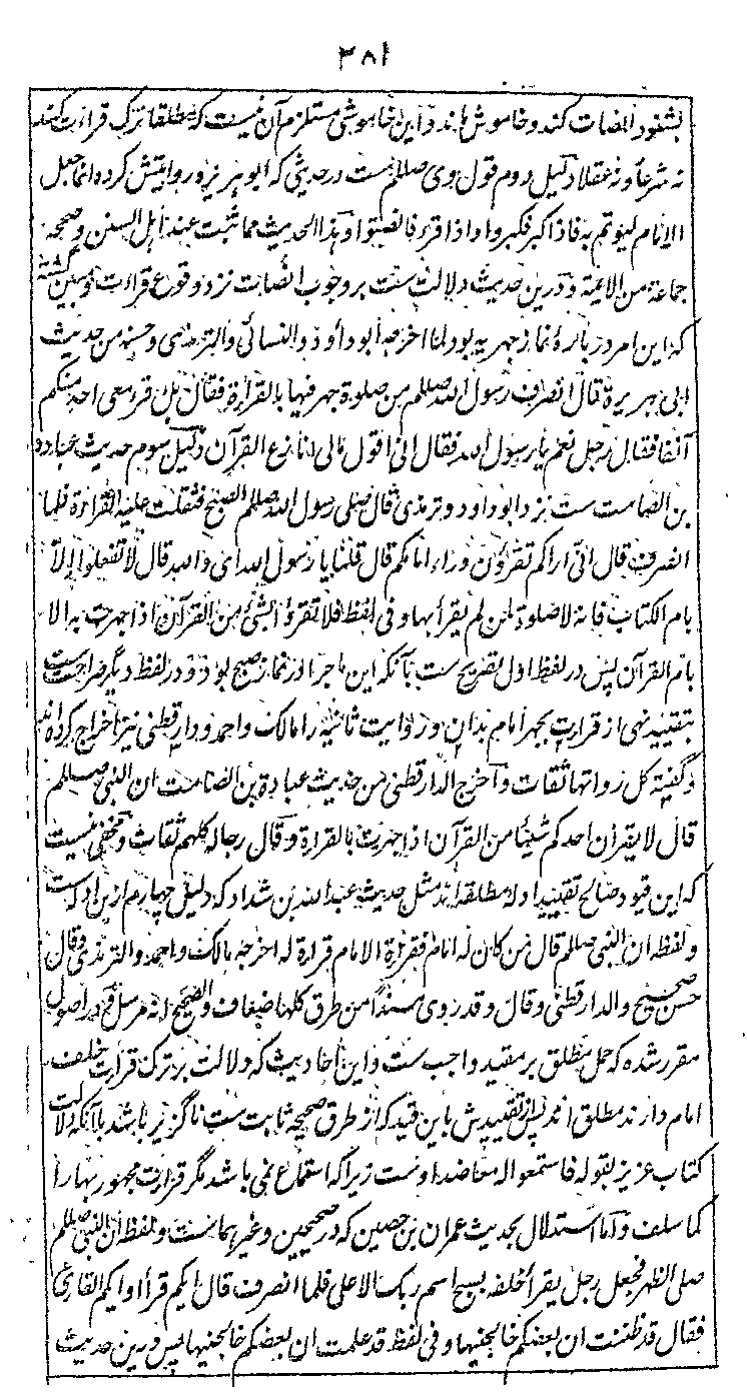 ۳۸۱
بشنود انصات کند و خاموش ماند و این خاموشی مستلزم آن نیست که مطلقا ترک قراءت کند
نه شرعا و نه عقلا دلیل دوم قول وی صللم ست در حدیثی که ابو هریره روایتش کرده انما جعل
الامام لیوتم به فاذا کبر فکبروا و اذا قرء فانصتوا و هذا الحدیث مما ثبت عند اهل السنن و صححه
جماعة من الایمة و درین حدیث دلالت ست بر وجوب انصات نزد وقوع قراءت و مبین گشته
که این امر در بارهٔ نماز جهریه بود لما اخرجه ابو داود والنسائی والترمذی وحسنه من حدیث
ابی هریرة قال انصرف رسول الله صللم من صلوة جهر فیها بالقراءة فقال هل قرء معی احد منکم
آنفا فقال رجل نعم یا رسول الله فقال انی اقول مالی انازع القرآن دلیل سوم حدیث عباده
بن الصامت ست نزد ابو داود و ترمذی قال صلی رسول الله صللم الصبح فثقلت علیه القراءة فلما
انصرف قال انی اراکم تقرؤن وراء امامکم قال قلنا یا رسول الله ای والله قال لا تفعلوا الا
بام الکتاب فانه لا صلوة لمن لم یقرأ بها و فی لفظ فلا تقرؤا بشئ من القرآن اذا جهرت به الا
بام القرآن پس در لفظ اول تصریح ست بآنکه این ماجرا در نماز صبح بود و در لفظ دیگر صراحت ست
بتقیید نهی از قراءت بجهر امام بدان و روایت ثانیه را مالک و احمد و دار قطنی نیز اخراج کرده اند
و گفته کل رواتها ثقات و اخرج الدار قطنی من حدیث عبادة بن الصامت ان النبی صللم
قال لا یقرأن احدکم شیئا من القرآن اذا جهرت بالقراءة و قال رجاله کلهم ثقات و مخفی نیست
که این قیود صالح تقیید ادلهٔ مطلقه اند مثل حدیث عبد الله بن شداد که دلیل چهارم از ادله ست
و لفظه ان النبی صللم قال من کان له امام فقراءة الامام قراءة له اخرجه مالک و احمد والترمذی وقال
حسن صحیح والدار قطنی وقال وقد روی مسندا من طرق کلها ضعاف والصحیح انه مرسل و در اصول
مقرر شده که حمل مطلق بر مقید واجب ست و این احادیث که دلالت بر ترک قراءت خلف
امام دارند مطلق اند پس تقییدش باین قید که از طرق صحیحه ثابت ست ناگزیر باشد با آنکه دلالت
کتاب عزیز بقوله فاستمعوا له معاضد اوست زیراکه استماع نمی باشد مگر قراءت مجهور بها را
کما سلف و اما استدلال بحدیث عمران بن حصین که در صحیحین و غیر هماست و لفظه ان النبی صللم
صلی الظهر فجعل رجل یقرأ خلفه بسبح اسم ربک الاعلی فلما انصرف قال ایکم قرأ او ایکم القارئ
فقال قد ظننت ان بعضکم خالجنیها و فی لفظ قد علمت ان بعضکم خالجنیها پس درین حدیث